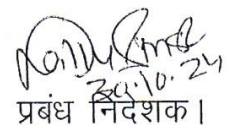 30.10.24
प्रबंध निदेशक।